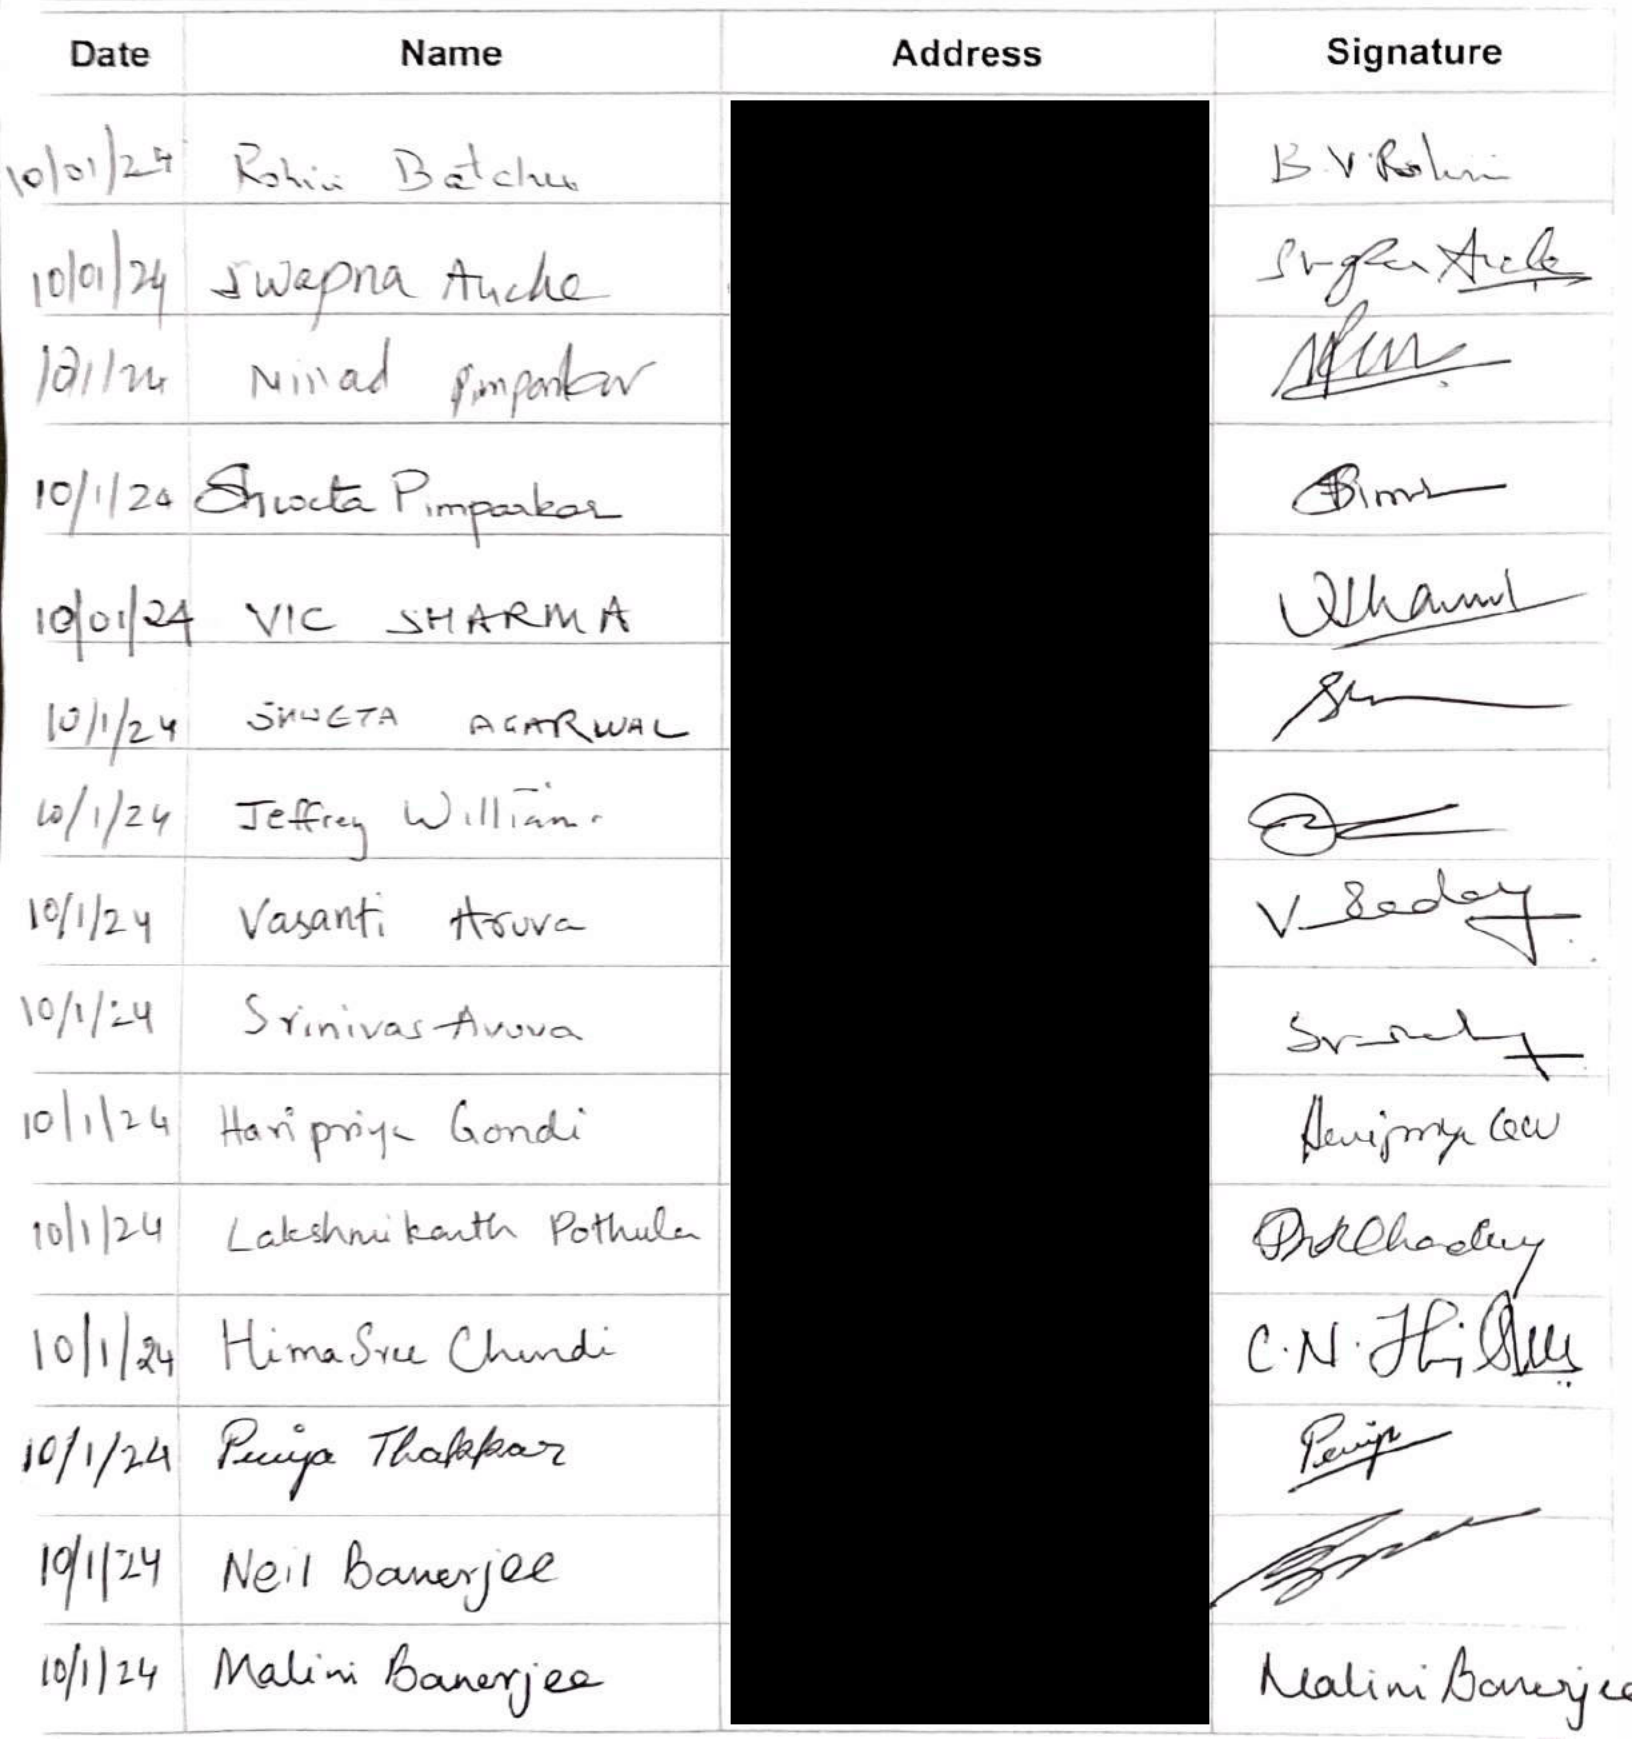 Date Name Address Signature
10/01/24 Rohini Batchu B.V.Rohini
10/01/24 Swapna Auche
10/1/24 Ninad Pimparkar
10/1/24 Shweta Pimparkar
10/01/24 VIC SHARMA
10/1/24 SHWETA AGARWAL
10/1/24 Jeffrey William
10/1/24 Vasanti Aruva
10/1/24 Srinivas Aruva
10/1/24 Haripriya Gondi
10/1/24 Lakshmikanth Pothula
10/1/24 HimaSree Chundi C.N.
10/1/24 Thakkar
10/1/24 Neil Banerjee
10/1/24 Malini Banerjee Malini Banerjee